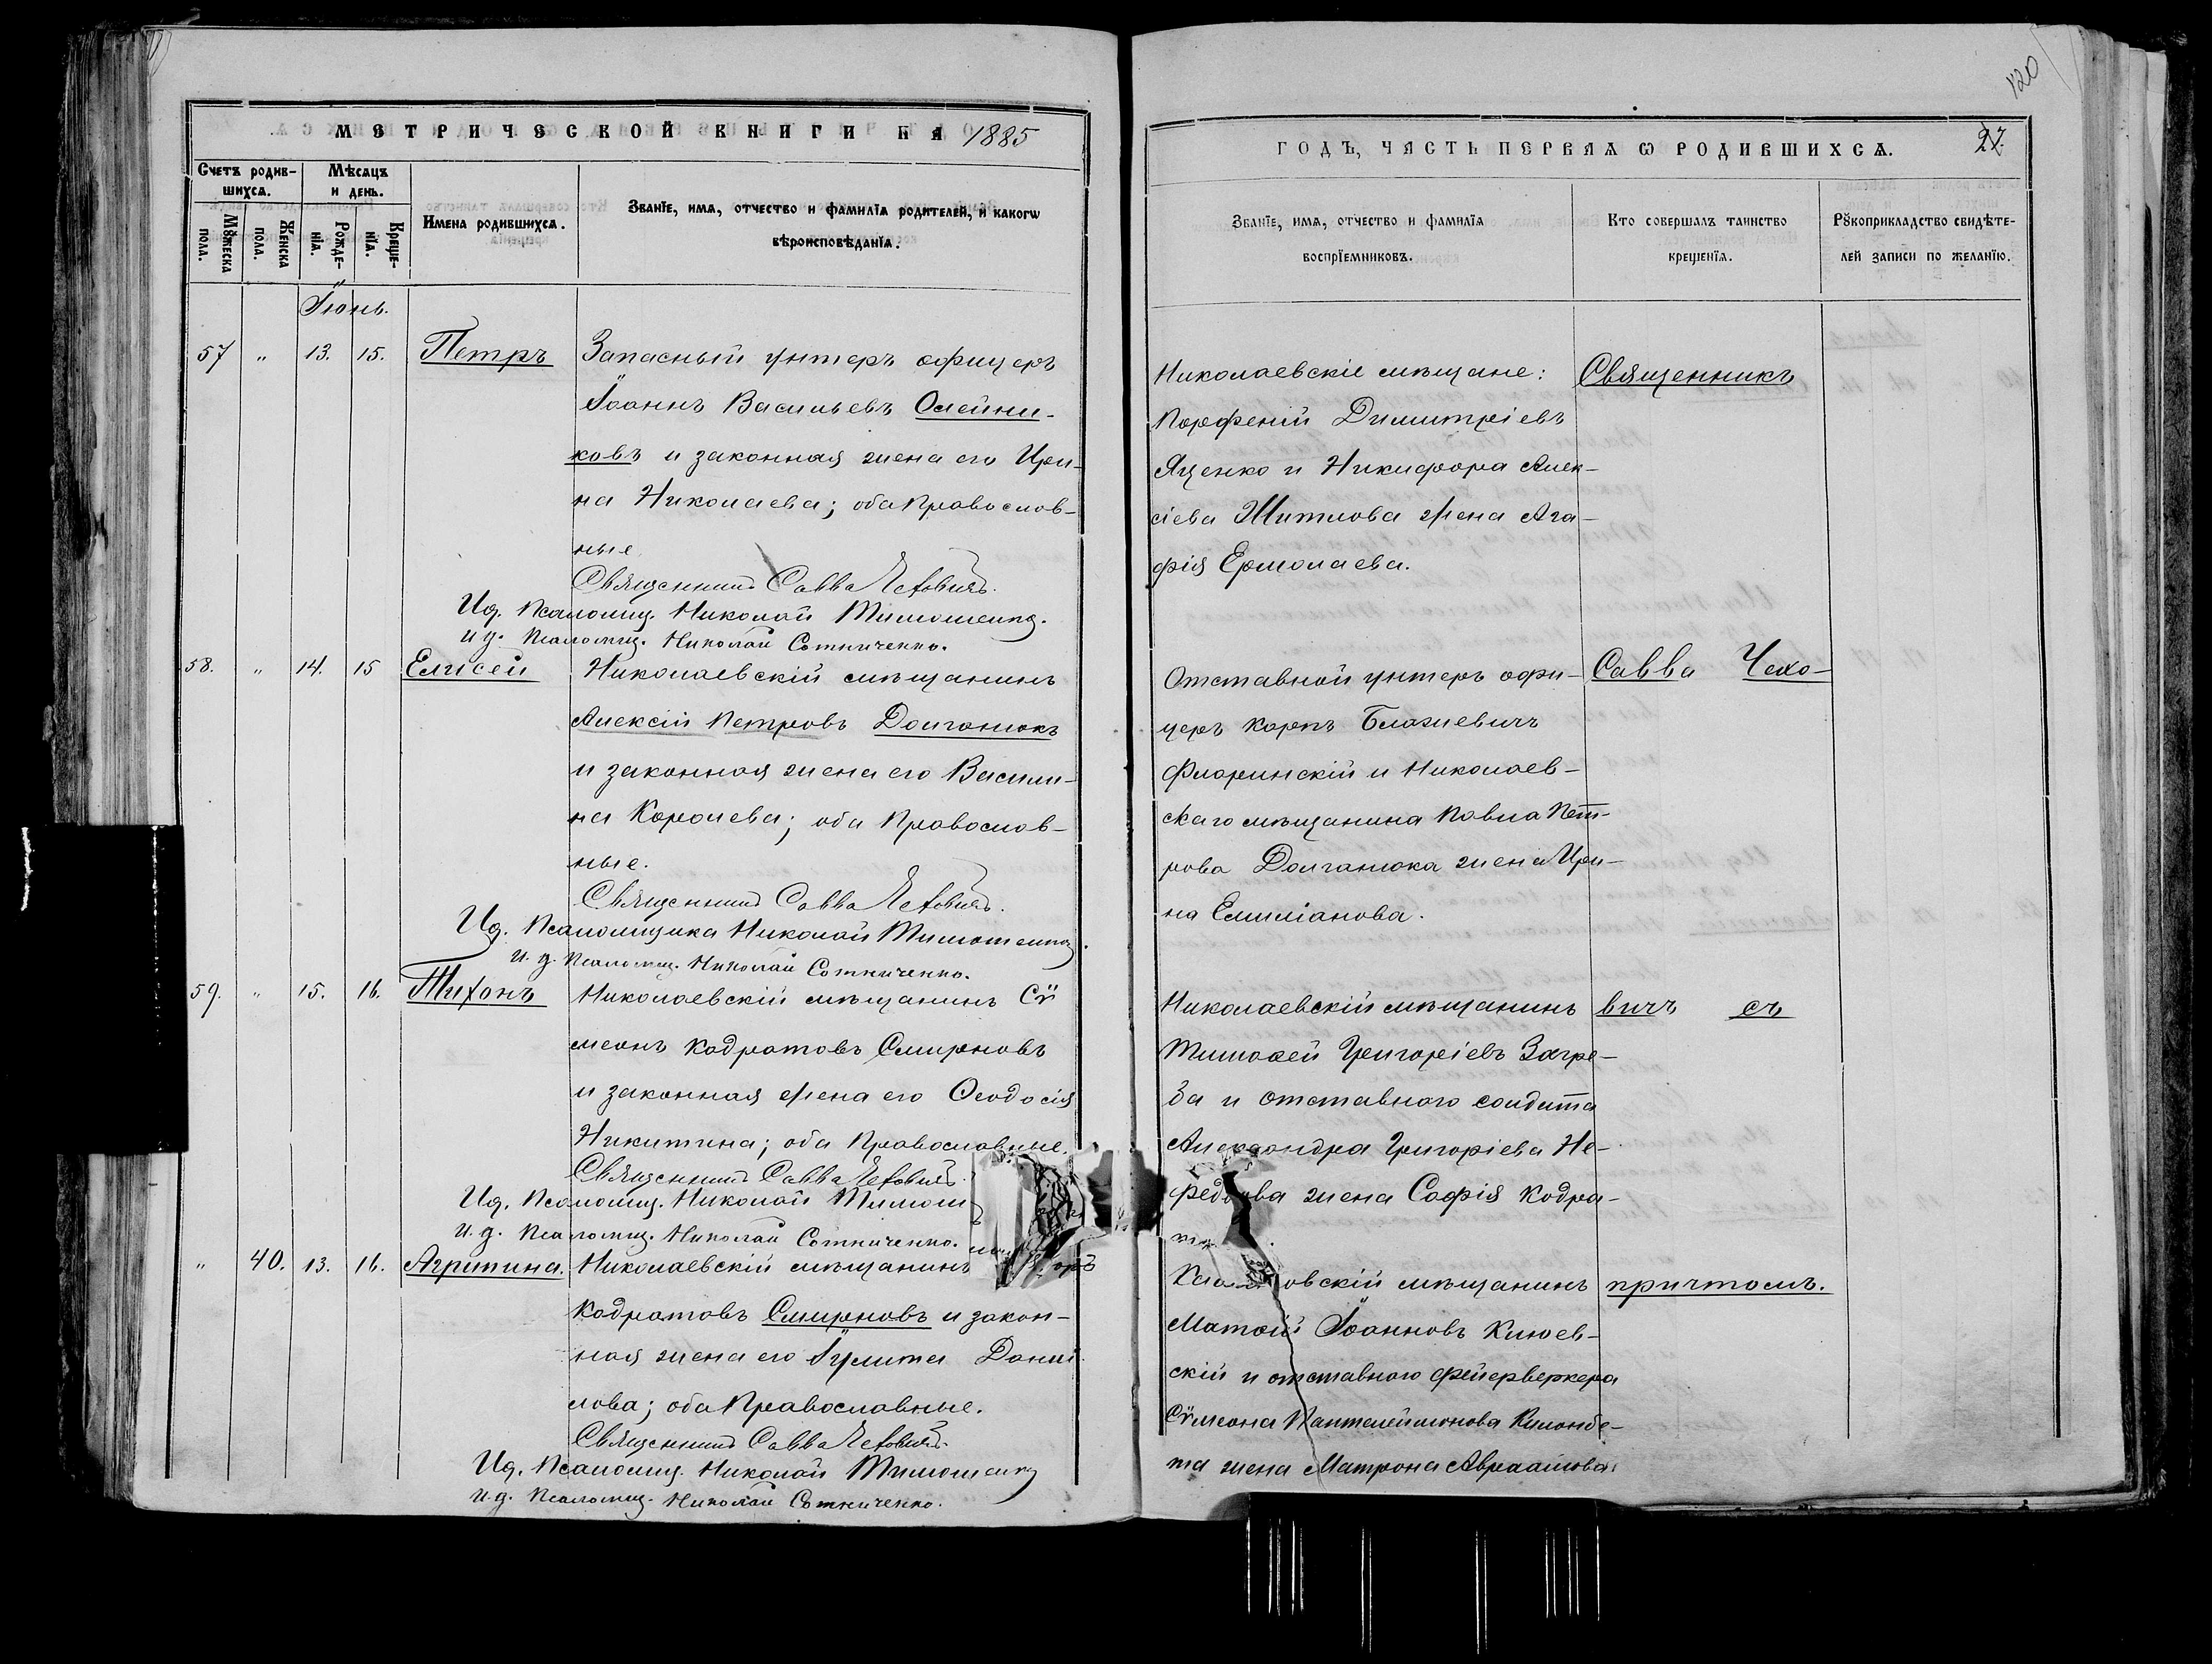 МЕТРИЧЕСКОЙ КНИГИ НА 1885
Счетъ родив-
шихсѧ.
Мѣсѧцъ
и день.
Мꙋжеска
пола.
Женска
пола.
Рожде-
нїѧ.
Креще-
нїѧ.
Имена родившихсѧ.
Званїе, имѧ, отчество и фамилїѧ родителей, и какогѡ
вѣроисповѣданїѧ.
Іюнь.
57 " 13. 15. Петръ
Запасный унтеръ офицеръ
Іоаннъ Васильевъ Олейни-
ковъ и законная жена его Ири-
на Николаева; оба Православ-
ные
Священникъ Савва Чеховичъ.
И д. Псаломщ. Николай Тимошенко.
и д. Псаломщ. Николай Сотниченко.
58. " 14. 15 Елисей
Николаевскій мѣщанинъ
Алексій Петровъ Долганюкъ
и законная жена его Васили-
на Королева; оба Православ-
ные.
Священникъ Савва Чеховичъ.
И д. Псаломщика Николай Тимошенко.
и. д. Псаломщ. Николай Сотниченко.
59. " 15. 16. Тихонъ
Николаевскій мѣщанинъ Сѵ
меонъ Кодратовъ Смирновъ
и законная жена его Ѳеодосія
Никитина; оба Православные.
Священникъ Савва Чеховичъ.
И д. Псаломщ. Николай Тимош
и. д. Псаломщ. Николай Сотниченко.
" 40. 13. 16. Агрипина.
Николаевскій мѣщанинъ
Кодратовъ Смирновъ и закон-
ная жена его Іулита Дании
лова; оба Православные.
Священникъ Савва Чеховичъ.
И д. Псаломщ. Николай Тимошенко
и. д. Псаломщ. Николай Сотниченко.
120
ГОДЪ, ЧАСТЬ ПЕРВАѦ Ѡ РОДИВШИХСѦ.
27.
Званїе, имѧ, отчество и фамилїѧ
воспрїемниковъ.
Кто совершалъ таинство
крещенїѧ.
Рꙋкоприкладство свидѣте-
лей записи по желанїю.
Николаевскіе мѣщане:
Порфеній Димитріевъ
Яценко и Никифора Алек-
сіева Шитлова жена Ага-
фія Ермолаева.
Отставной унтеръ офи-
церъ Карпъ Блажіевичъ
Флоринскій и Николаев-
скаго мѣщанина Павла Пет-
рова Долганюка жена Ири-
на Емиліанова.
Николаевскій мѣщанинъ
Тимоѳей Григоріевъ Загре-
ба и отставного солдата
Александра Григоріева Не-
федова жена Софія Кодра-
овскій мѣщанинъ
Матѳій Іоанновъ Клюев-
скій и отставного фейерверкера
Сѵмеона Пантелеймонова
жена Матрона Авраамова.
Священникъ
Савва Чехо-
вичъ съ
причтомъ.